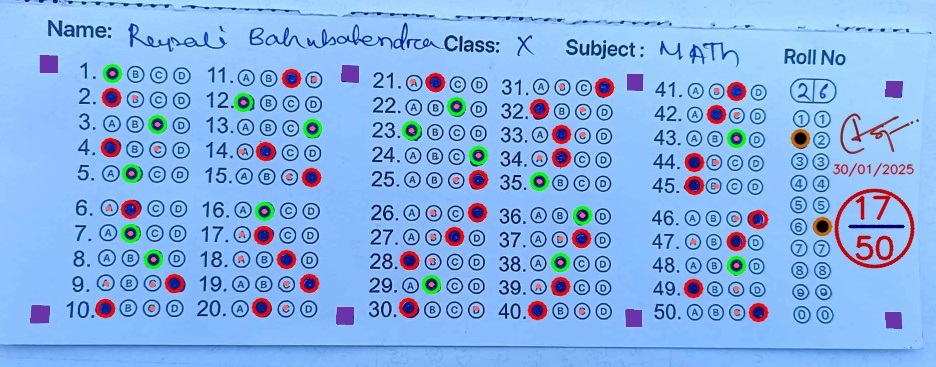 Name: Class: X Subject: MATH Roll No
26
1. A B C D
2. A B C D
3. A B C D
4. A B C D
5. A B C D
6. A B C D
7. A B C D
8. A B C D
9. A B C D
10. A B C D
11. A B C D
12. A B C D
13. A B C D
14. A B C D
15. A B C D
16. A B C D
17. A B C D
18. A B C D
19. A B C D
20. A B C D
21. A B C D
22. A B C D
23. A B C D
24. A B C D
25. A B C D
26. A B C D
27. A B C D
28. A B C D
29. A B C D
30. A B C D
31. A B C D
32. A B C D
33. A B C D
34. A B C D
35. A B C D
36. A B C D
37. A B C D
38. A B C D
39. A B C D
40. A B C D
41. A B C D
42. A B C D
43. A B C D
44. A B C D
45. A B C D
46. A B C D
47. A B C D
48. A B C D
49. A B C D
50. A B C D
1 1
2
3 3
4 4
5 5
6
7 7
8 8
9 9
0 0
30/01/2025
17
50